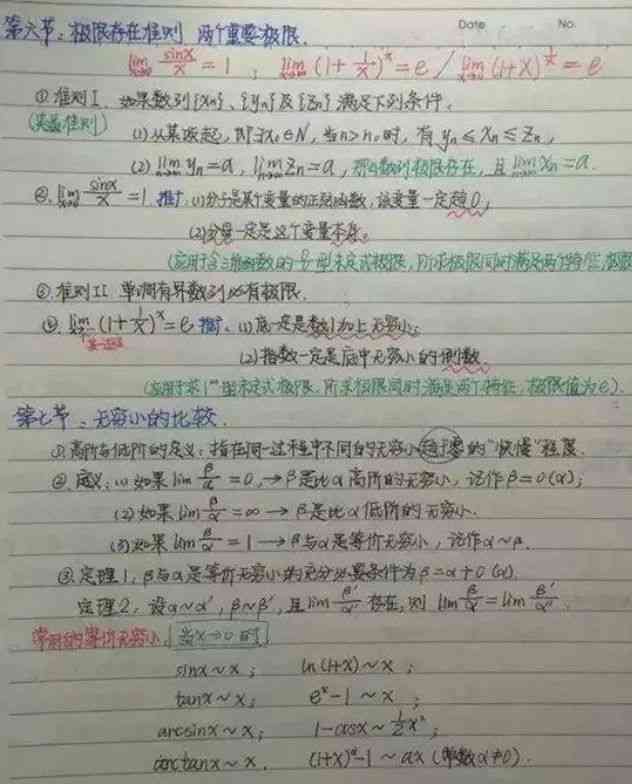 Date No.
第六节:极限存在准则 两个重要极限.
lim x→0 sinx/x = 1 ; lim x→∞ (1+1/x)^x = e / lim x→0 (1+x)^(1/x) = e
① 准则I. 如果数列{xn}、{yn}及{zn}满足下列条件.
(夹逼准则) (1)从某项起,即∃n₀∈N,当n>n₀时,有 yn≤xn≤zn,
(2) lim n→∞ yn=a, lim n→∞ zn=a, 那么数列极限存在,且 lim n→∞ xn=a.
②. lim x→0 sinx/x = 1. 推广.(1)分子是某个变量的正弦函数,该变量一定趋0,
(2)分母一定是这个变量本身。
(应用于含三角函数的 0/0 型未定式极限,所求极限同时满足两个特征,极限
③.准则II 单调有界数列必有极限.
④. lim (1+1/x)^x = e 推广. (1)底一定是数1加上无穷小;
(2)指数一定是底中无穷小的倒数.
(应用于求1^∞型未定式极限,所求极限同时满足两个特征,极限值为e).
第七节:无穷小的比较.
①.高阶与低阶的定义:指在同一过程中不同的无穷小趋于零的“快慢”程度.
②.定义:(1)如果 lim β/α = 0,→β是比α高阶的无穷小,记作β=o(α);
(2)如果 lim β/α = ∞ → β是比α低阶的无穷小.
(3)如果 lim β/α = 1 → β与α是等价无穷小,记作α~β.
③.定理1,β与α是等价无穷小的充分必要条件为β=α+o(α).
定理2,设α~α′,β~β′,且lim β′/α′ 存在,则 lim β/α = lim β′/α′.
常用的等价无穷小 当x→0时
sinx~x ; ln(1+x)~x ;
tanx~x ; e^x-1~x ;
arcsinx~x ; 1-cosx~½x² ;
arctanx~x . (1+x)^α-1~αx (常数α≠0).